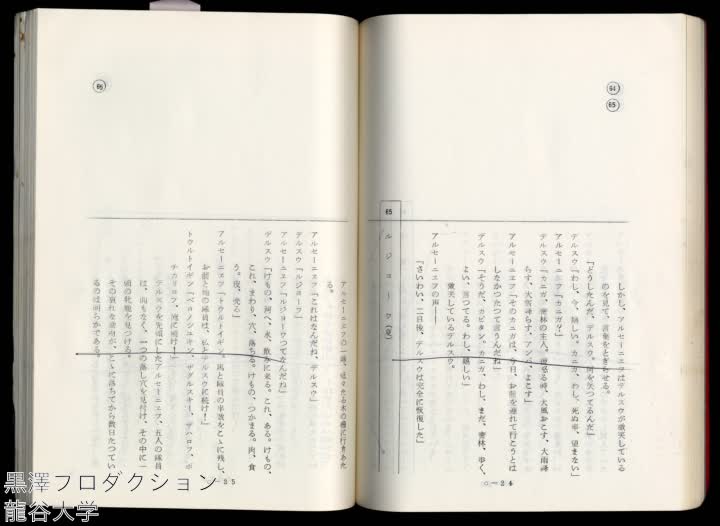 64
65
しかし、アルセーニエフはデルスウが微笑している
のを見て、言葉をときらせる。
「どうしたんだ、デルスウ。何を笑つてるんだ」
デルスウ「わし、今、嬉しい。カニガ、わし、死ぬ事、望まない」
アルセーニエフ「カニガ？」
デルスウ「カニガ、密林の主人。彼怒る時、大風おこす、大雨降
らす、大雪降らす、アンバ、よこす」
アルセーニエフ「そのカニガは、今日、お前を連れて行こうとは
しなかつたつて言うんだね」
デルスウ「そうだ、カピタン。カニガ、わし、まだ、密林、歩く、
よい、言つてる。わし、嬉しい」
微笑しているデルスウ。
アルセーニエフの声――
「さいわい、二日後、デルスウは完全に恢復した」
65
ルジョーワ(夏)
24
65
アルセーニエフの一隊、様々たる木の柵に行きあた
る。
アルセーニエフ「これはなんだね、デルスウ」
デルスウ「ルジョーワ」
アルセーニエフ「ルジョーワつてなんだね」
デルスウ「けもの、河へ、水、飲みに来る。これ、ある。けもの、
これ、まわり、穴、落ちる。けもの、つかまる。肉、食
う。皮、売る」
アルセーニエフ「トウルトイギン。馬と隊員の半数をこゝに残し、
お前と他の隊員は、私とデルスウに続け！」
トウルトイギン「ベロノシユキン、ザグルスキー、ザハロフ、ボ
チカリョフ、俺に続け！」
デルスウを先頭にしたアルセーニエフ、五人の隊員
は、間もなく、一つの落し穴を見付け、その中に一
頭の牝鹿を見つける。
その哀れな動物が、こゝに落ちてから数日たつてい
るのは明らかである。
25
黒澤プロダクション
龍谷大学